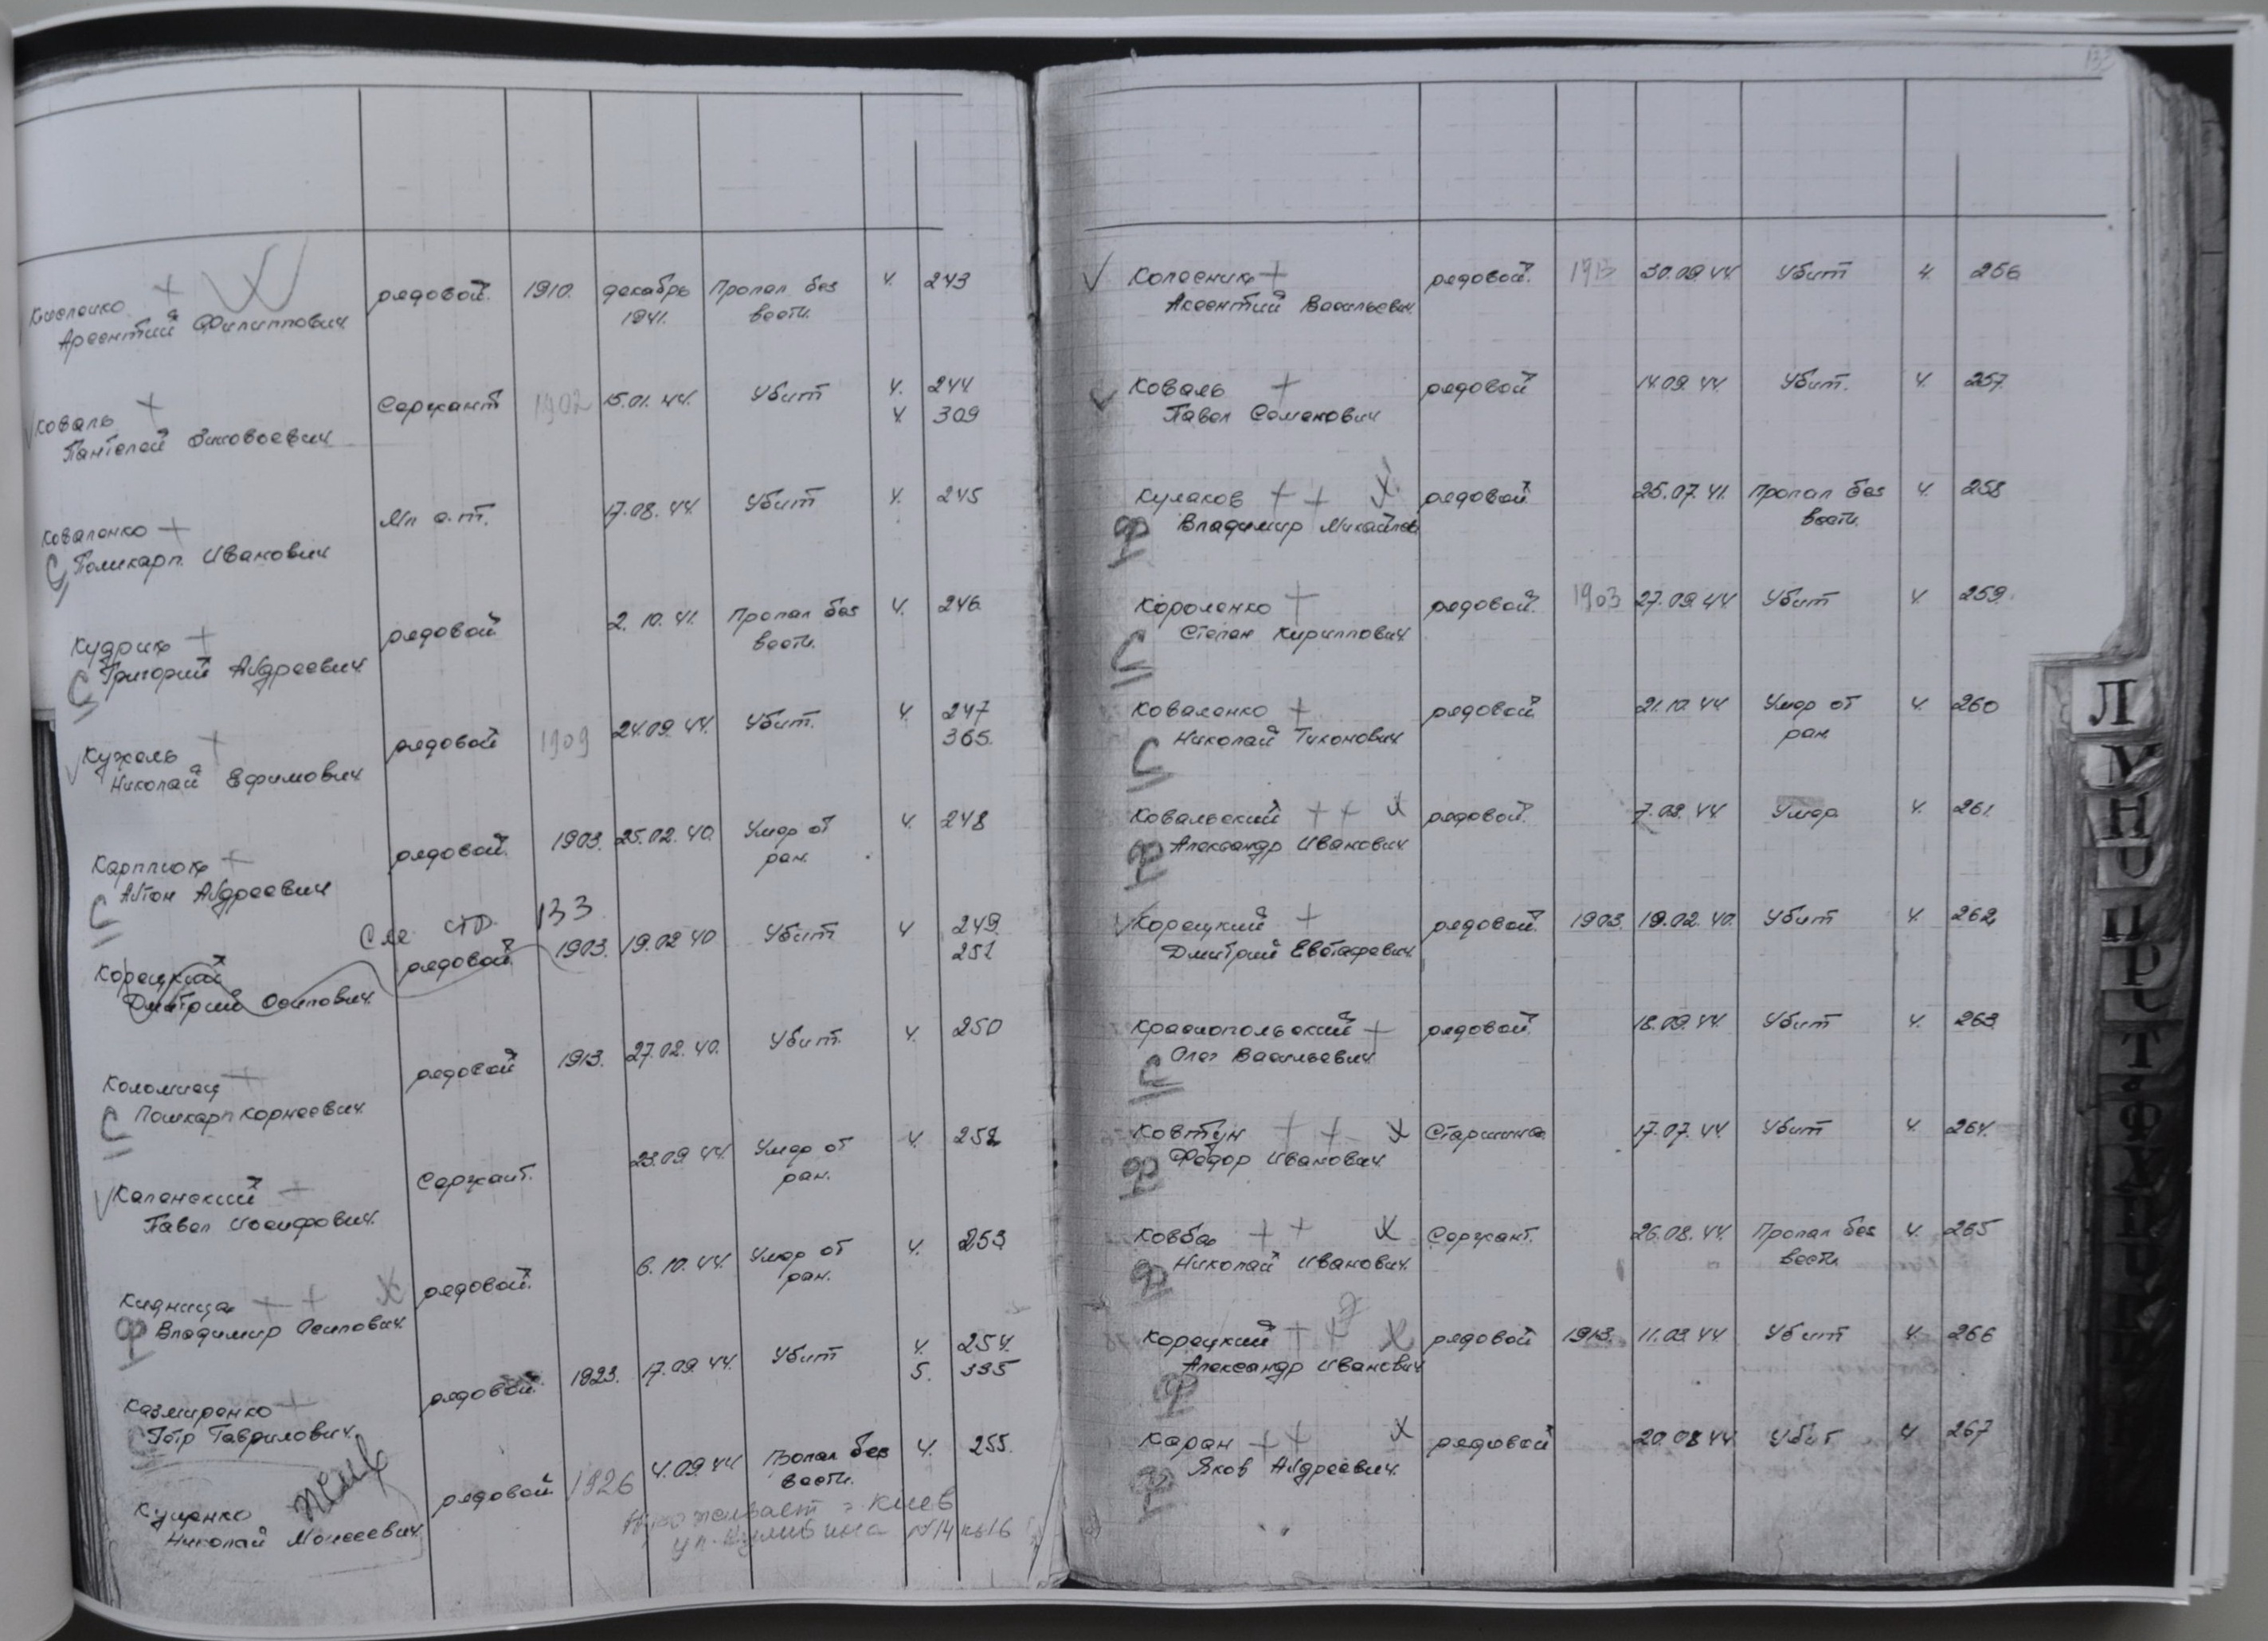 Киеленко + рядовой. 1910. декабрь Пропал без 4. 243
Арсентий Филиппович 1941. вести.
Коваль + Сержант 1902 15.01.44. Убит 4. 244
Пантелей Зиновьевич 4 309
Коваленко + Мл с-т. 17.08.44. Убит 4. 245
С Поликарп Иванович
Кудрик + рядовой 2.10.41. Пропал без 4. 246
С Григорий Андреевич вести.
Кужель + рядовой 1909 24.09.44. Убит. 4. 247
Николай Ефимович 365.
Карплюк + рядовой. 1903. 25.02.40. Умер от 4. 248
С Антон Андреевич ран.
См стр. 133
Корецкий рядовой 1903. 19.02.40 Убит 4 249.
Дмитрий Осипович 251
Коломиец + рядовой 1913. 27.02.40. Убит. 4. 250
С Поликарп Корнеевич.
Каленский + Сержант. 23.09.44. Умер от 4. 252
Павел Иосифович. ран.
++ х рядовой. 6.10.44. Умер от 4. 253
Ф Владимир Осипович. ран.
Казмиренко + рядовой 1923. 17.09.44. Убит 4. 254.
С Петр Гаврилович. 5. 335
Кущенко жив рядовой 1926 4.09.44 Пропал без 4. 255.
Николай Моисеевич вести.
проживает г. Киев
ул. Кулибина №14 кв16
Колесник + рядовой. 1913 30.09.44 Убит 4. 256
Аксентий Васильевич.
Коваль + рядовой 14.09.44. Убит. 4. 257
Павел Семенович
Кулаков + + х рядовой 25.07.41. Пропал без 4. 258
Ф Владимир Михайлов вести.
Короленко + рядовой 1903 27.09.44 Убит 4. 259.
С Степан Кириллович
Коваленко + рядовой 21.10.44 Умер от 4. 260
С Николай Тихонович ран.
Ковальский + + х рядовой. 7.03.44. Умер 4. 261.
Ф Александр Иванович
Корецкий + рядовой. 1903. 19.02.40. Убит 4. 262
Дмитрий Евстафевич.
Краснопольский + рядовой 18.09.44. Убит 4. 263
С Олег Васильевич
Ковтун + + х Старшина 17.07.44. Убит 4. 264.
Ф Федор Иванович.
Ковба + + х Сержант. 26.08.44. Пропал без 4. 265
Ф Николай Иванович. вести.
Корецкий + + х рядовой 1913. 11.03.44 Убит 4. 266
Ф Александр Иванович
Каран + + х рядовой 20.08.44 Убит 4 267
Ф Яков Андреевич.
Л
М
Н
О
П
Р
С
Т